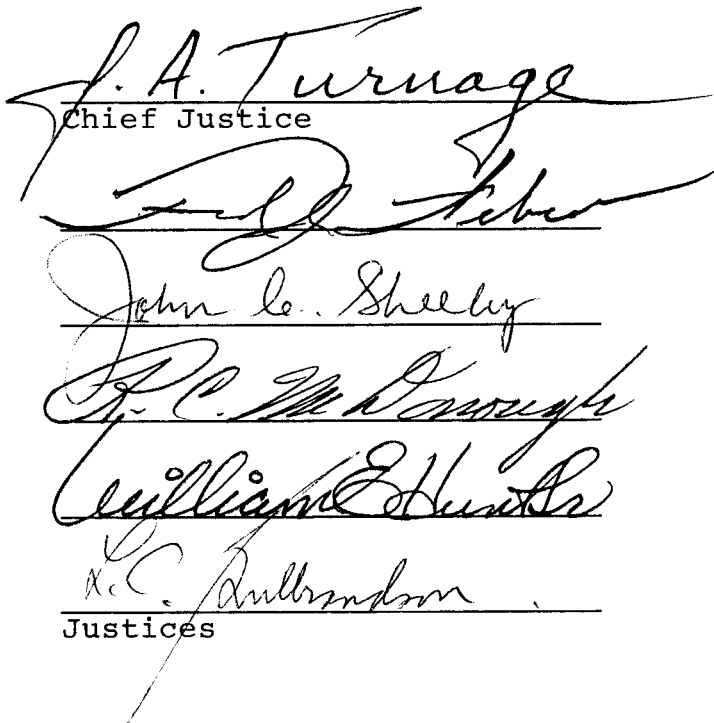 J. A. Turnage
Chief Justice
John C. Sheehy
R. C. McDonough
William E. Hunter
L.C. Gulbrandson
Justices